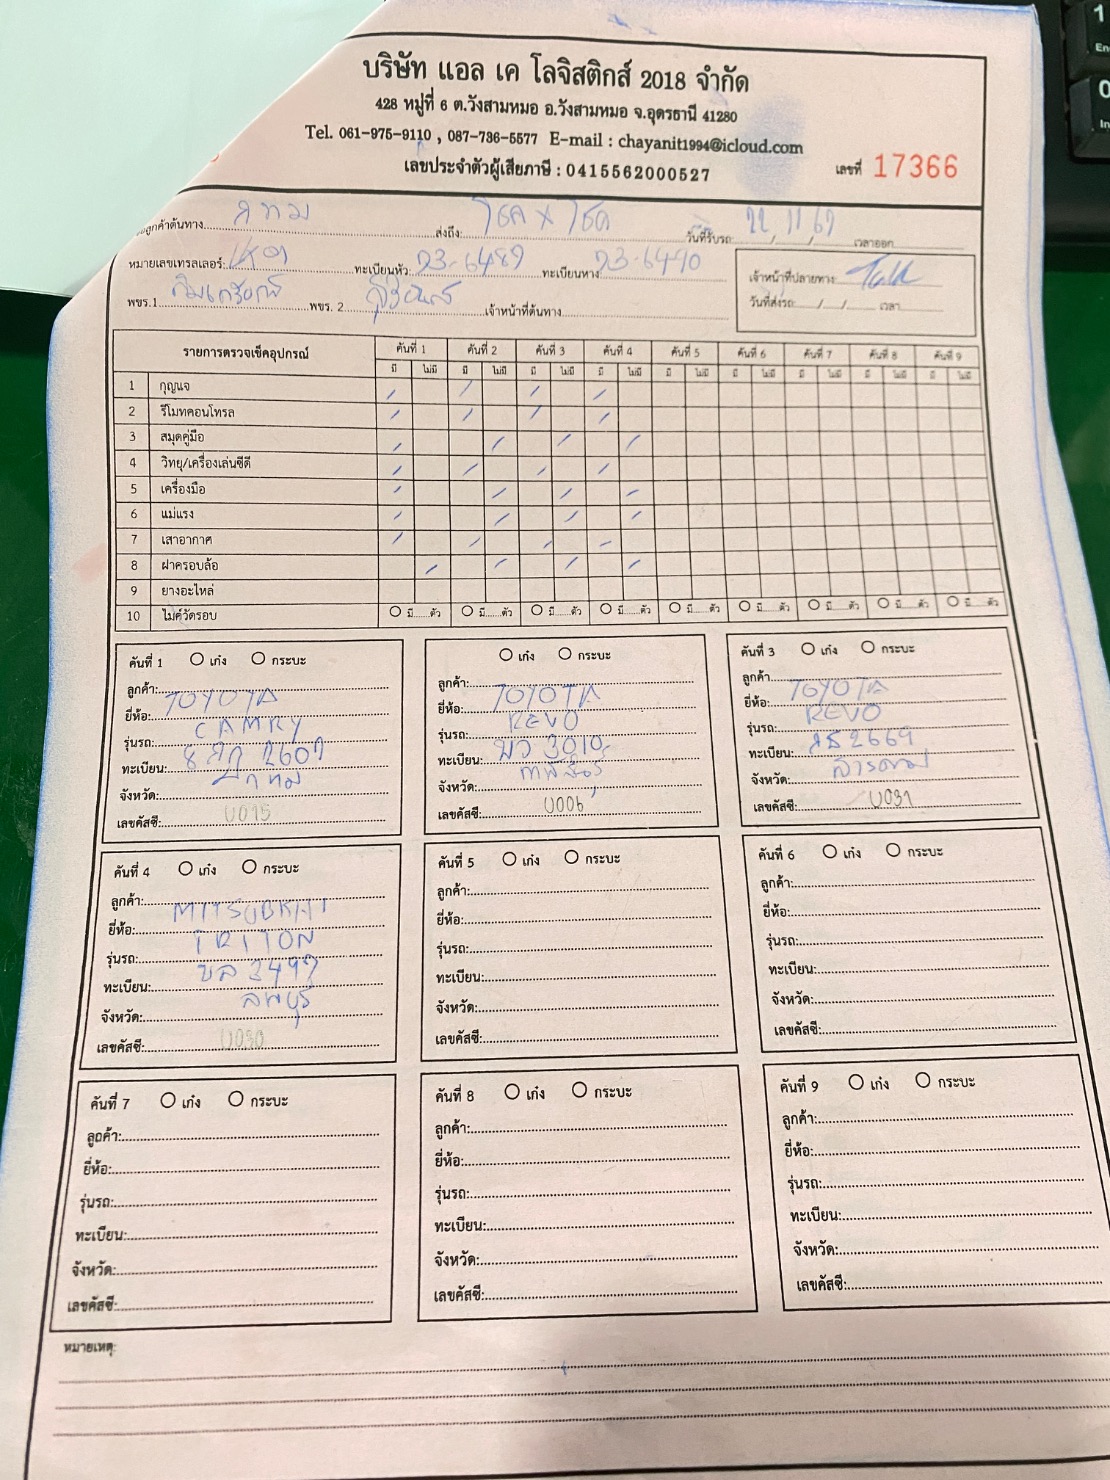 บริษัท แอล เค โลจิสติกส์ 2018 จำกัด
428 หมู่ที่ 6 ต.วังสามหมอ อ.วังสามหมอ จ.อุดรธานี 41280
Tel. 061-975-9110 , 087-736-5577 E-mail : chayanit1994@icloud.com
เลขประจำตัวผู้เสียภาษี : 0415562000527
เลขที่ 17366
ลูกค้าต้นทาง กทม ส่งถึง: โชค x โชค วันที่รับรถ: 22 / 11 / 67 เวลาออก
หมายเลขเทรลเลอร์: ทะเบียนหัว: 73-6489 ทะเบียนหาง: 73-6470
เจ้าหน้าที่ปลายทาง:
พขร.1 พขร. 2 เจ้าหน้าที่ต้นทาง:
วันที่ส่งรถ: / / เวลา
รายการตรวจเช็คอุปกรณ์ คันที่ 1 คันที่ 2 คันที่ 3 คันที่ 4 คันที่ 5 คันที่ 6 คันที่ 7 คันที่ 8 คันที่ 9
มี ไม่มี มี ไม่มี มี ไม่มี มี ไม่มี มี ไม่มี มี ไม่มี มี ไม่มี มี ไม่มี มี ไม่มี
1 กุญแจ / / / /
2 รีโมทคอนโทรล / / / /
3 สมุดคู่มือ / / / /
4 วิทยุ/เครื่องเล่นซีดี / / / /
5 เครื่องมือ / / / /
6 แม่แรง / / / /
7 เสาอากาศ / / / /
8 ฝาครอบล้อ / / / /
9 ยางอะไหล่
10 ไมค์วัดรอบ มี......ตัว มี......ตัว มี......ตัว มี......ตัว มี......ตัว มี......ตัว มี......ตัว มี......ตัว มี......ตัว
คันที่ 1 เก๋ง กระบะ
ลูกค้า:
ยี่ห้อ: TOYOTA
รุ่นรถ: CAMRY
ทะเบียน: 2607
จังหวัด: กทม
เลขคัสซี: U015
เก๋ง กระบะ
ลูกค้า:
ยี่ห้อ: TOYOTA
รุ่นรถ: REVO
ทะเบียน: 3010
จังหวัด:
เลขคัสซี: U006
คันที่ 3 เก๋ง กระบะ
ลูกค้า
ยี่ห้อ: TOYOTA
รุ่นรถ: REVO
ทะเบียน: 2669
จังหวัด:
เลขคัสซี: U031
คันที่ 4 เก๋ง กระบะ
ลูกค้า:
ยี่ห้อ: MITSUBISHI
รุ่นรถ: TRITON
ทะเบียน: 3497
จังหวัด: ลพบุรี
เลขคัสซี: U030
คันที่ 5 เก๋ง กระบะ
ลูกค้า:
ยี่ห้อ:
รุ่นรถ:
ทะเบียน:
จังหวัด:
เลขคัสซี:
คันที่ 6 เก๋ง กระบะ
ลูกค้า:
ยี่ห้อ:
รุ่นรถ:
ทะเบียน:
จังหวัด:
เลขคัสซี:
คันที่ 7 เก๋ง กระบะ
ลูกค้า:
ยี่ห้อ:
รุ่นรถ:
ทะเบียน:
จังหวัด:
เลขคัสซี:
คันที่ 8 เก๋ง กระบะ
ลูกค้า:
ยี่ห้อ:
รุ่นรถ:
ทะเบียน:
จังหวัด:
เลขคัสซี:
คันที่ 9 เก๋ง กระบะ
ลูกค้า:
ยี่ห้อ:
รุ่นรถ:
ทะเบียน:
จังหวัด:
เลขคัสซี:
หมายเหตุ: